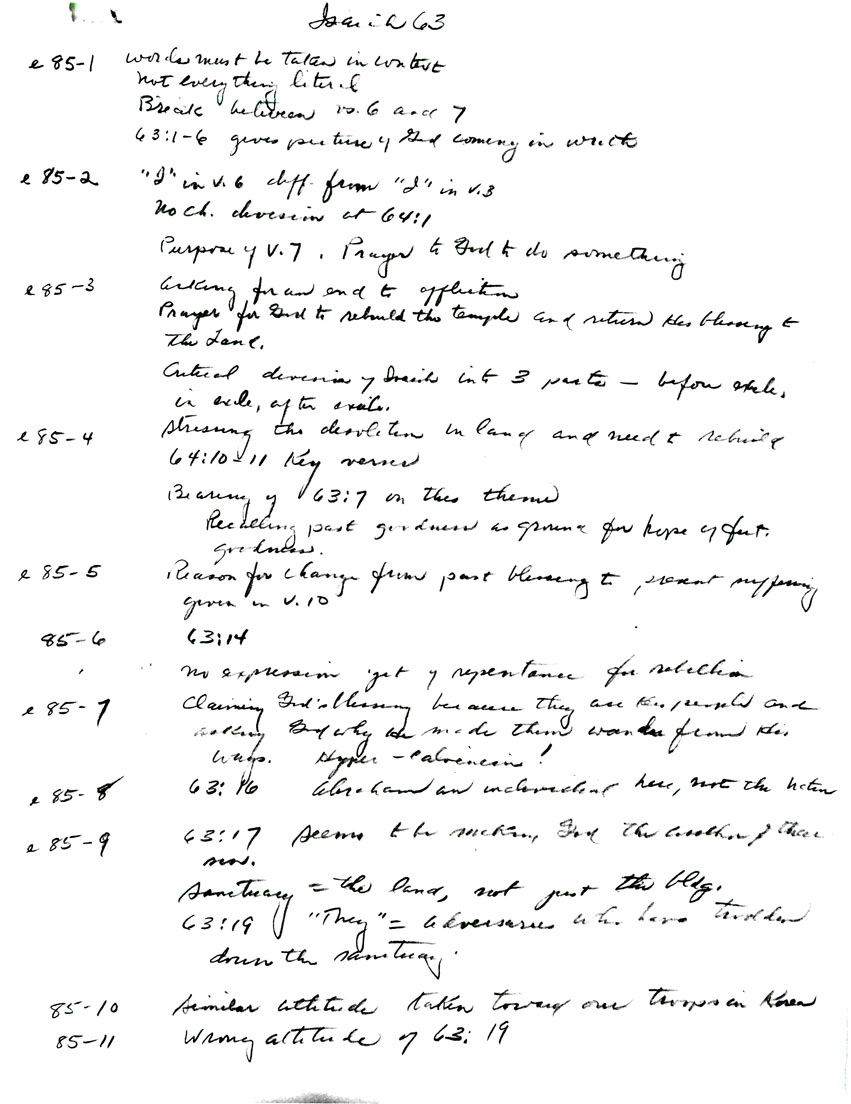 Isaiah 63
e 85-1 words must be taken in context
not everything literal
Break between vs. 6 and 7
63:1-6 gives picture of God coming in wrath
e 85-2 "I" in v. 6 diff. from "I" in v. 3
No ch. division at 64:1
Purpose of v. 7. Prayer to God to do something
e 85-3 asking for an end to affliction
Prayer for God to rebuild the temple and return His blessing to
the Land.
Critical division of Isaiah into 3 parts — before exile,
in exile, after exile.
e 85-4 stressing the desolation in land and need to rebuild
64:10-11 Key verses
Bearing of 63:7 on this theme
Recalling past goodness as ground for hope of fut.
goodness.
e 85-5 Reason for change from past blessing to present suffering
given in v. 10
85-6 63:14
no expression yet of repentance for rebellion
e 85-7 Claiming God's blessing because they are His people and
asking God why He made them wander from His
ways. Hyper-Calvinism!
e 85-8 63:16 Abraham an individual here, not the nation
e 85-9 63:17 seems to be making God the author of their
sin.
Sanctuary = the land, not just the bldg.
63:19 "They" = adversaries who have trodden
down the sanctuary.
85-10 similar attitude taken toward our troops in Korea
85-11 Wrong attitude of 63:19